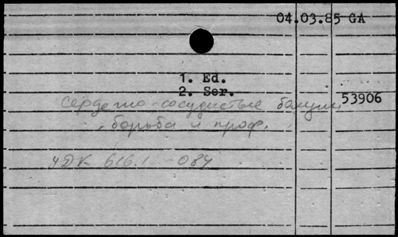 04.03.85 GA
1. Ed.
2. Ser.
53906
Сердечно-сосудистые
борьба и проф.
УДК 616.1 - 084